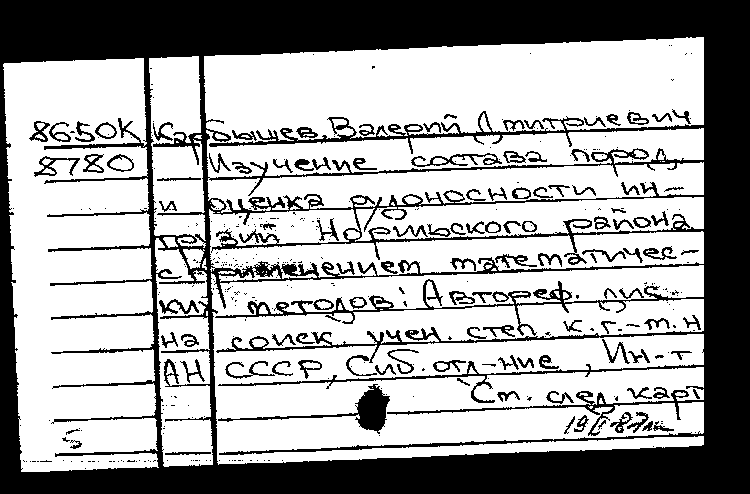 86-50К Карбышев, Валерий Дмитриевич
8780 Изучение состава пород
и оценка рудоносности ин-
трузий Норильского района
с применением математичес-
ких методов: Автореф. дис.
на соиск. учен. степ. к.г.-м.н
АН СССР, Сиб. отд-ние, Ин-т
См. след. карт
5